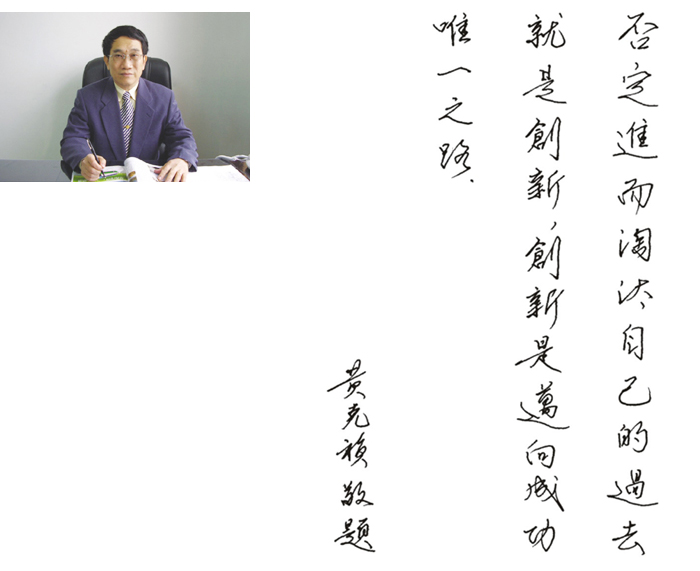 否定進而淘汰自己的過去
就是創新,創新是邁向成功
唯一之路.
黃克禎敬題